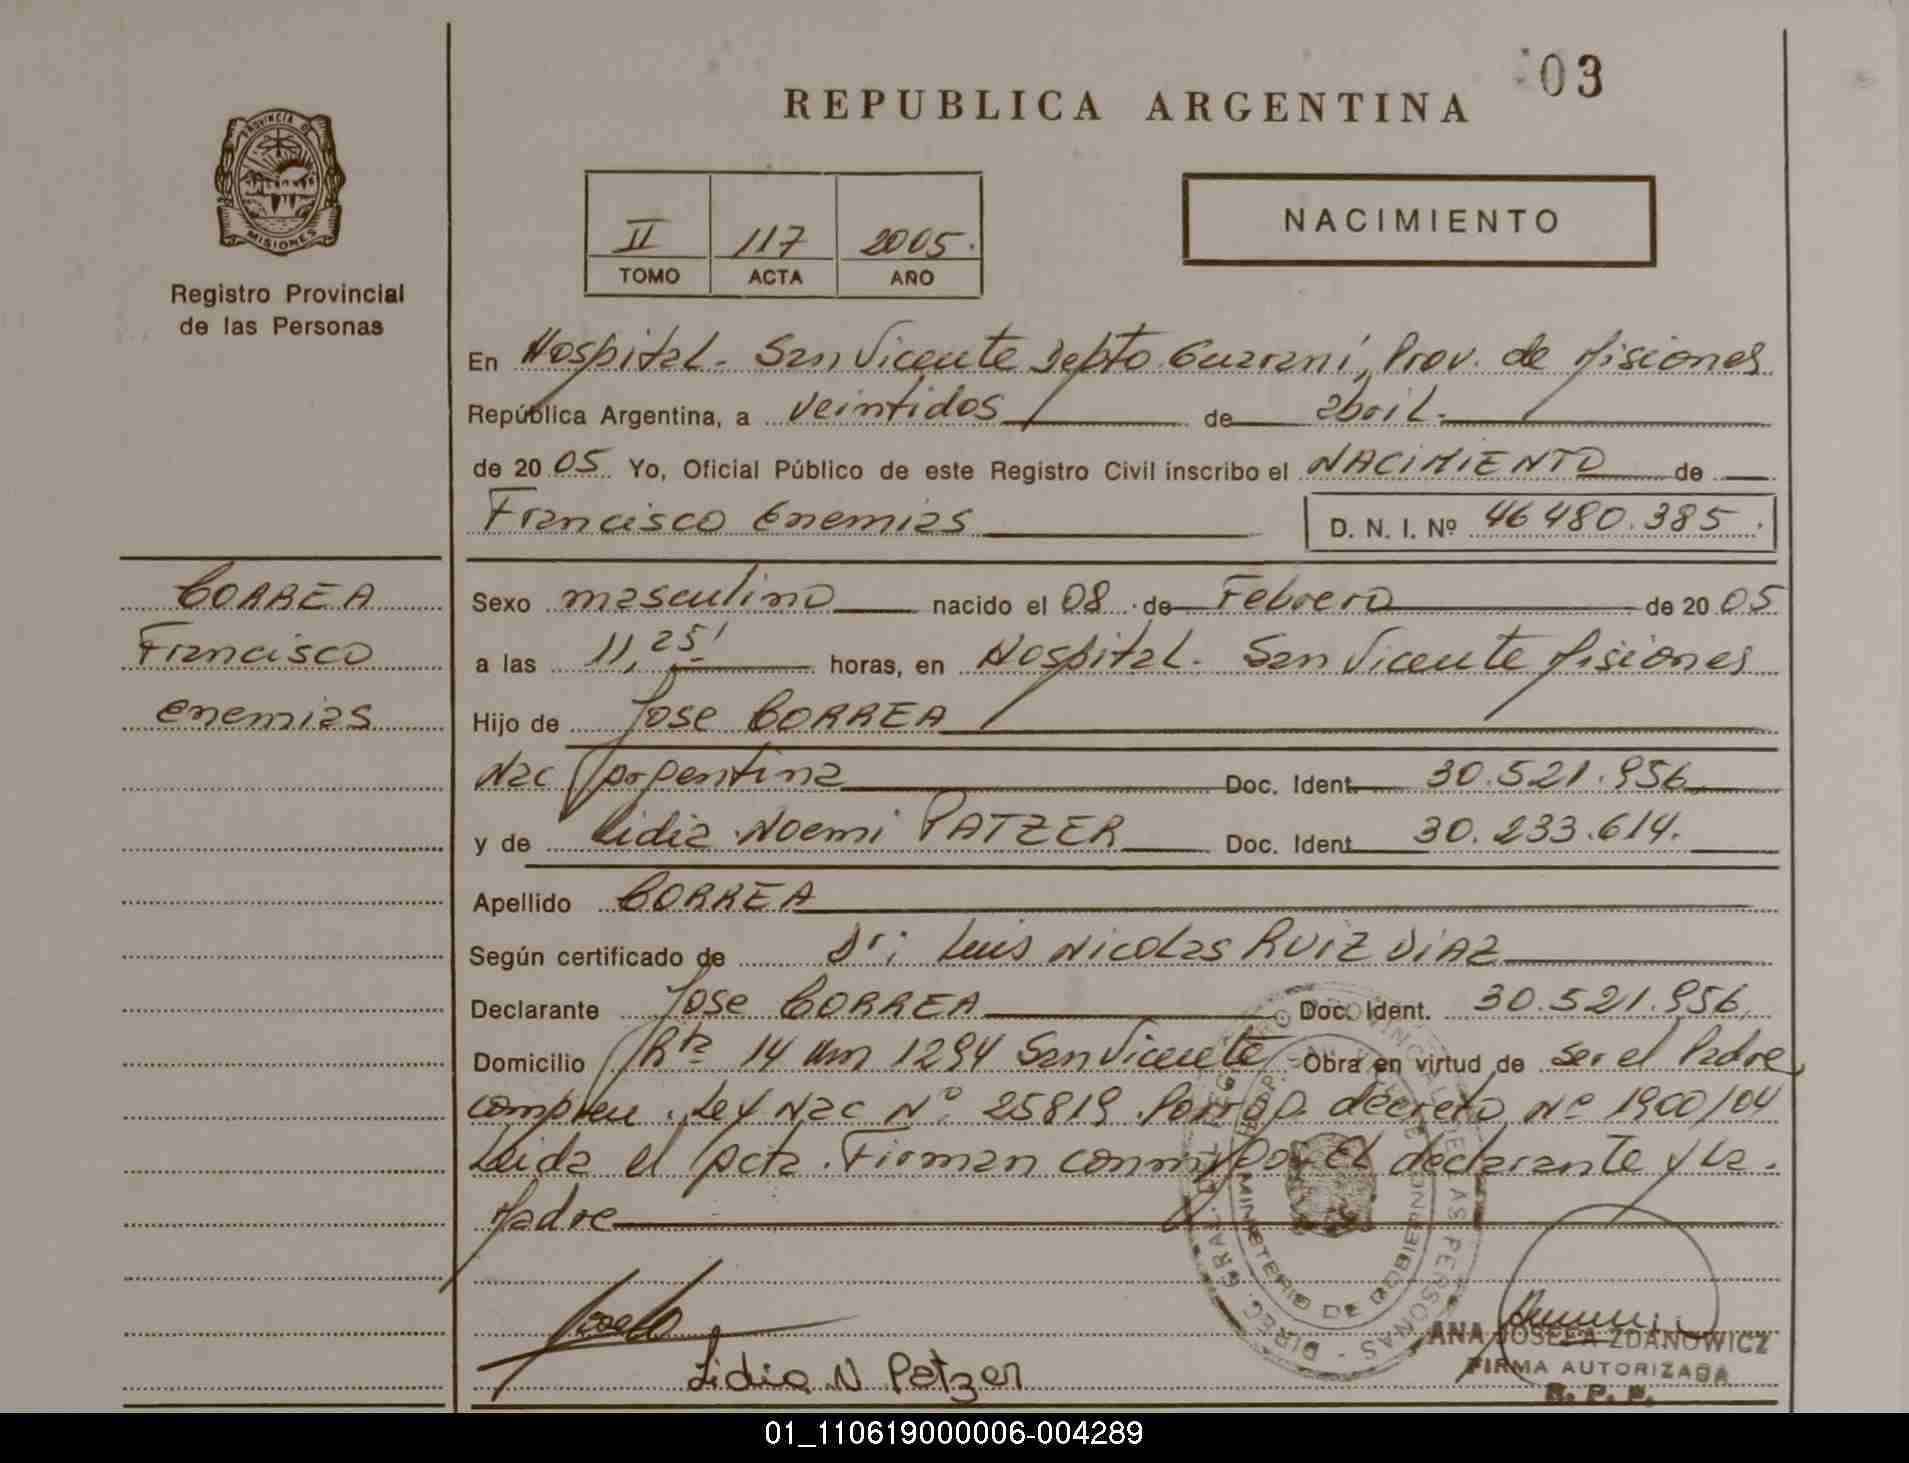 03
REPUBLICA ARGENTINA
PROVINCIA D
MISIONES
Registro Provincial
de las Personas
II 117 2005.
TOMO ACTA AÑO
NACIMIENTO
En Hospital. San Vicente Depto Guarani, Prov. de Misiones
República Argentina, a veintidos de abril.
de 20 05 Yo, Oficial Público de este Registro Civil inscribo el NACIMIENTO de
Francisco Enemias D. N. I. Nº 46480.385
CORREA
Francisco
Enemias
Sexo masculino nacido el 08 de Febrero de 20 05
a las 11,25' horas, en Hospital. San Vicente Misiones
Hijo de Jose CORREA
Nac Argentina Doc. Ident 30.521.956
y de Lidia Noemi PATZER Doc. Ident 30.233.614.
Apellido CORREA
Según certificado de Dr; Luis Nicolas RUIZ DIAZ
Declarante Jose CORREA Doc. Ident. 30.521.956
Domicilio Rta 14 Km 1294 San Vicente Obra en virtud de ser el Padre
Ley Nac Nº 25819 decreto Nº 1900/04
Leida el Acta. Firman conmigo El declarante y La
Madre
DIREC. GRAL. DEL REGISTRO PROVINCIAL DE LAS PERSONAS
MINISTERIO DE GOBIERNO
Lidia N Patzer
ANA JOSEFA ZDANOWICZ
FIRMA AUTORIZADA
R. P. P.
01_110619000006-004289